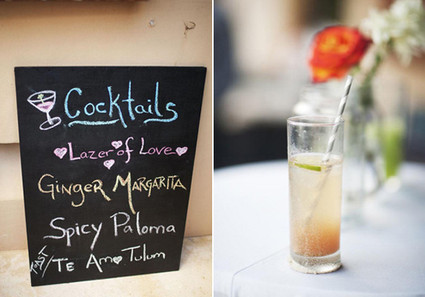 Cocktails
Lazer of Love
Ginger Margarita
Spicy Paloma
Te Amo Tulum